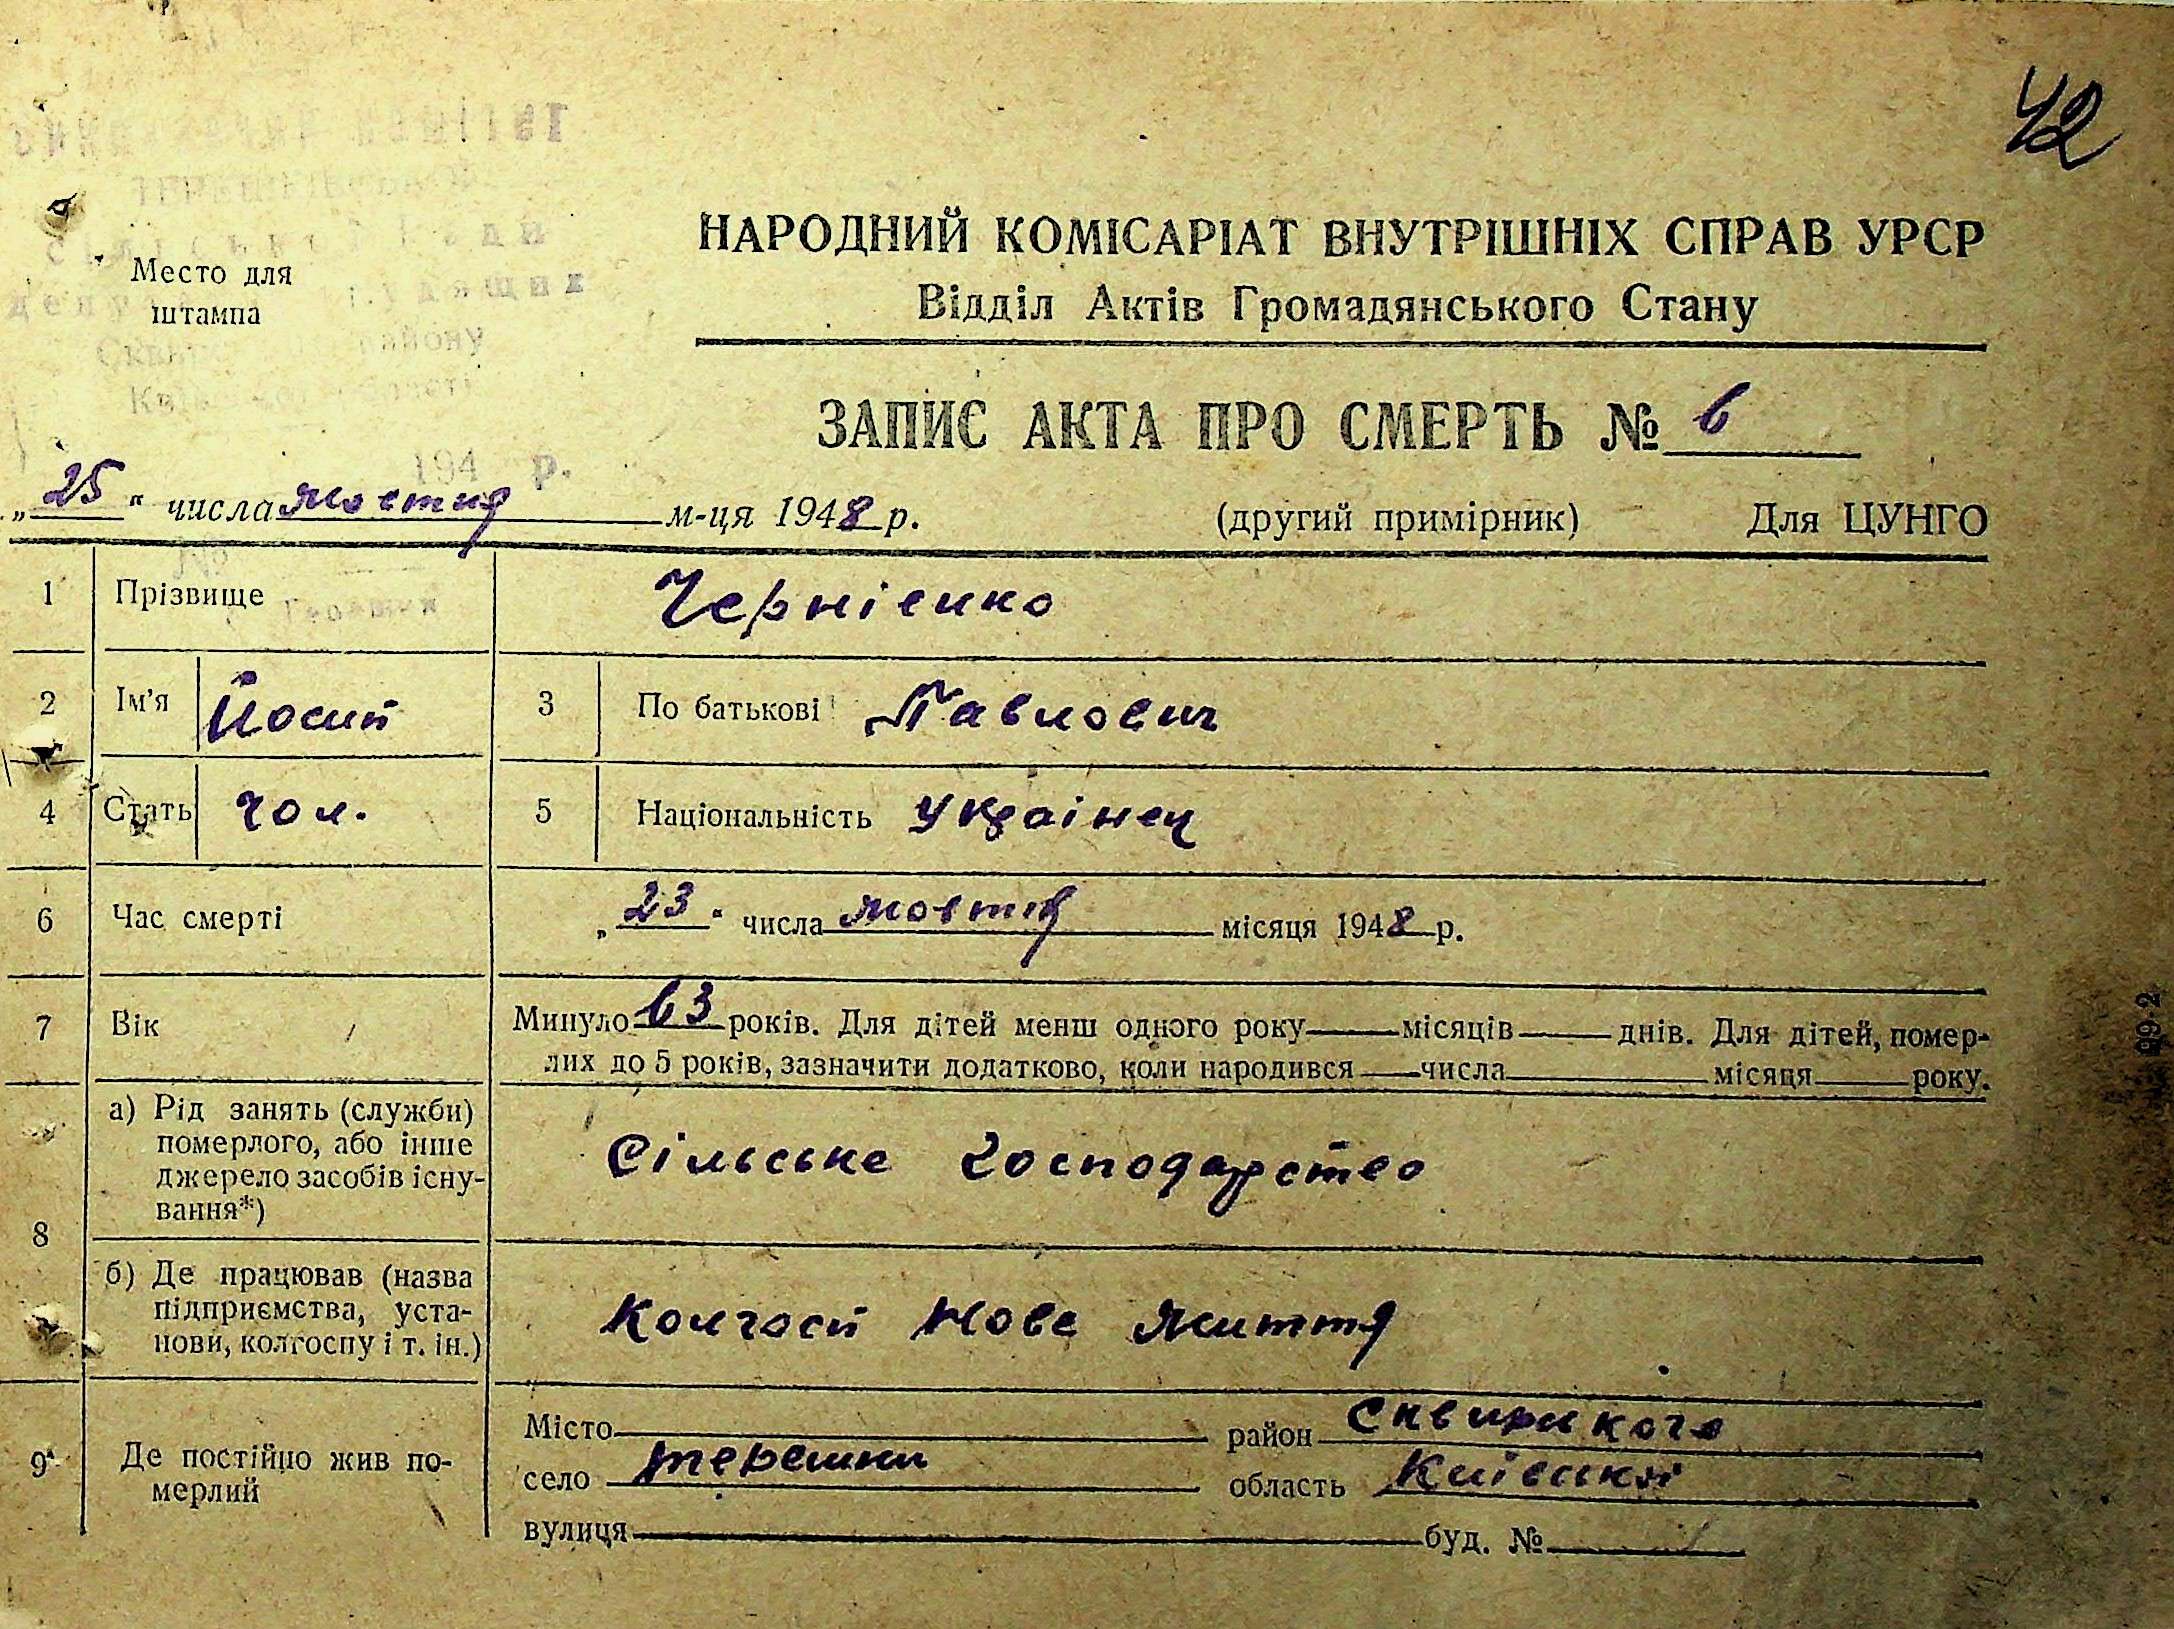 42
НАРОДНИЙ КОМІСАРІАТ ВНУТРІШНІХ СПРАВ УРСР
Відділ Актів Громадянського Стану
Место для
штампа
ЗАПИС АКТА ПРО СМЕРТЬ № 6
194 р.
„25“ числа жовтня м-ця 1948 р. (другий примірник) Для ЦУНГО
1 Прізвище Чернієнко
2 Ім'я Йосип 3 По батькові Павлович
4 Стать чол. 5 Національність Українец
6 Час смерті „23“ числа жовтня місяця 1948 р.
7 Вік Минуло 63 років. Для дітей менш одного року місяців днів. Для дітей, помер-
лих до 5 років, зазначити додатково, коли народився числа місяця року.
8 а) Рід занять (служби)
померлого, або інше
джерело засобів існу-
вання*)
Сільське господарство
б) Де працював (назва
підприємства, уста-
нови, колгоспу і т. ін.)
Колгосп Нове життя
9 Де постійно жив по-
мерлий
Місто район Сквирського
село Терешки область Київська
вулиця буд. №